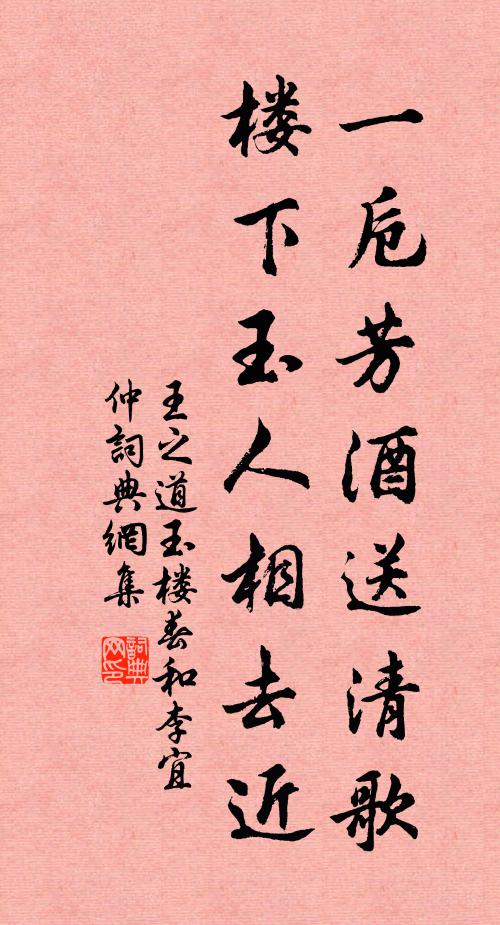 一卮芳酒送清歌
楼下玉人相去近
王之道玉楼春和李宜
仲詞典網集
詞典
网印